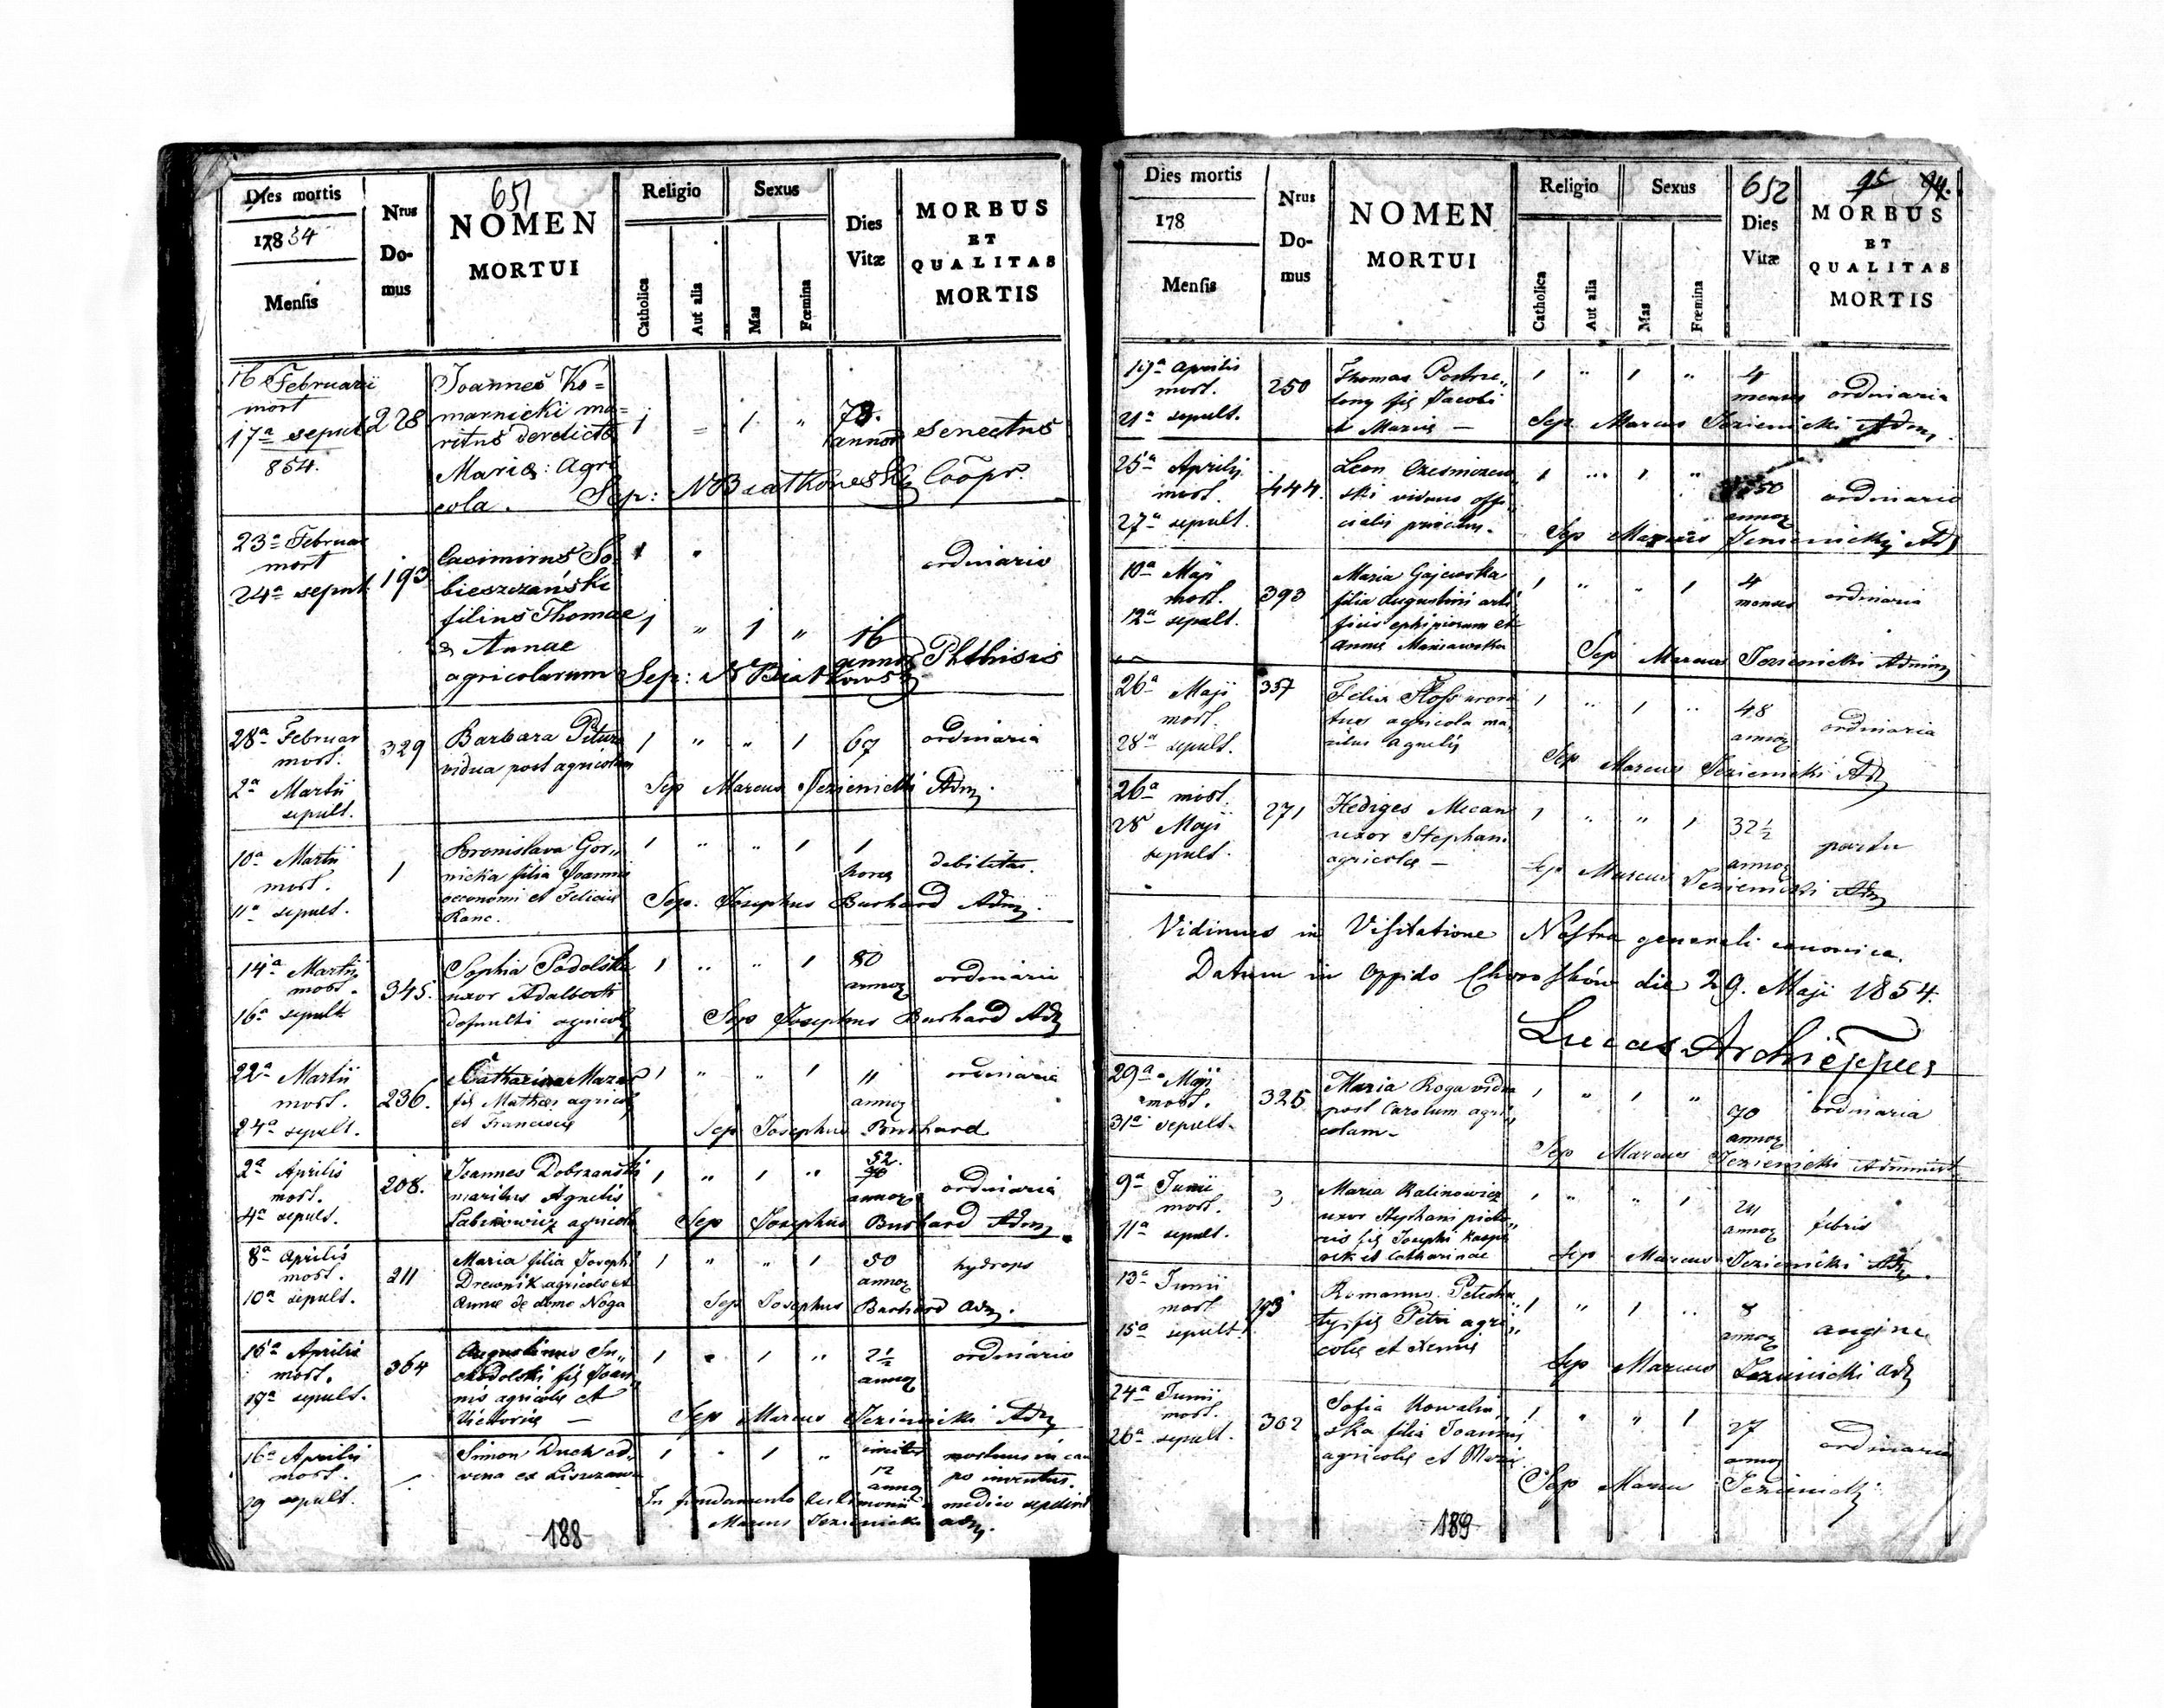 Dies mortis
17854
Mensis
Nrus
Do-
mus
651
NOMEN
MORTUI
Religio
Catholica
Aut alia
Sexus
Mas
Fœmina
Dies
Vitæ
MORBUS
ET
QUALITAS
MORTIS
16 Februarii
mort
17a sepult
854.
228
Joannes Ko=
marnicki ma=
ritus derelictae
Mariæ: Agri
cola.
1 = 1 "
annor
senectus
Sep: Coopr.
23a Februar
mort
24a sepult.
193
Casimirus So
bieszczański
filius Thomae
& Annae
agricolarum
1 "
ordinario
1 " 1 "
16
annor
Phthisis
Sep:
28a Februar
mort.
2a Martii
sepult.
329
Barbara
vidua post agricolam
1 " " 1
67
ordinaria
Sep Marcus Jezienicki Adm.
10a Martii
mort.
11a sepult.
1
Bronislava Gor,,
nicka filia Joannis
oeconomi et Feliciæ
Ranc.
1 " " 1
1
hora
debilitas.
Sep. Josephus Burhard Adm.
14a Martii
mort.
16a sepult
345.
Sophia Podolska
uxor Adalberti
defuncti agricolæ
1 " " 1
80
annor
ordinaria
Sep Josephus Burhard Adm
22a Martii
mort.
24a sepult.
236.
Catharina Mazur
fil Mathæi agricolæ
et Franciscæ
1 " " 1
11
annor
ordinaria
Sep Josephus Burhard
2a Aprilis
mort.
4a sepult.
208.
Joannes Dobrzański
maritus Agnetis
agricola
1 " 1 "
52.
annor
ordinaria
Sep Josephus Burhard Adm
8a Aprilis
mort.
10a sepult.
211
Maria filia Josephi
Drewnik agricolæ et
Annæ de domo Noga
1 " " 1
50
annor
hydrops
Sep Josephus Burhard Adm.
15a Aprilis
mort.
17a sepult.
364
Augustinus Su,,
chodolski fil Joan,,
nis agricolæ et
Victoriæ —
1 " 1 "
2½
annor
ordinario
Sep Marcus Jezienicki Adm
16a Aprilis
mort.
19 sepult.
Simon Duch ad,,
vena ex
1 " 1 "
circiter
12
annor
mortuus in cam
po inventus.
In fundamento testimonii medico
Marcus Jezienicki adm.
188
Dies mortis
178
Mensis
Nrus
Do-
mus
NOMEN
MORTUI
Religio
Catholica
Aut alia
Sexus
Mas
Fœmina
652
Dies
Vitæ
95 94.
MORBUS
ET
QUALITAS
MORTIS
19a Aprilis
mort.
21a sepult.
250
Thomas
fil Jacobi
et Mariæ —
1 " 1 "
4
menses
ordinaria
Sep Marcus Jezienicki Adm.
25a Aprilis
mort.
27a sepult.
444.
Leon
ski viduus offi
cialis
1 " 1 "
50
annor
ordinario
Sep Marcus Jezienicki Ad
10a Maji
mort.
12a sepult.
393
Maria Gajewska
filia Augustini arti
ficis ephipiorum et
Annæ
1 " " 1
4
menses
ordinaria
Sep Marcus Jezienicki Admin
26a Maji
mort.
28a sepult.
357
Felix Floss uxora
tus agricola ma,
ritus Agnetis
1 " 1 "
48
annor
ordinaria
Sep Marcus Jezienicki Ad
26a mort.
28 Maji
sepult.
271
Hediges Mecan
uxor Stephani
agricolæ —
1 " " 1
32½
annor
partu
Sep Marcus Jezienicki Adm
Vidimus in Visitatione Nostra generali canonica.
Datum in Oppido Chorostków die 29. Maji 1854.
Lucas Archieppus
29a Maji
mort.
31a sepult.
325
Maria Roga vidua
post Carolum agri,,
colam.
1 " 1 "
70
annor
ordinaria
Sep Marcus Jezienicki Administ
9a Junii
mort.
11a sepult.
3
Maria Kalinowicz
uxor Stephani picto,,
ris fil Josephi
et Catharinae
1 " " 1
annor
febris
Sep Marcus Jezienicki Adm.
13a Junii
mort
15a sepult.
193
Romanus
fil Petri agri,,
colæ et Xeniæ
1 " 1 "
8
annor
angina
Sep Marcus Jezienicki Adm
24a Junii
mort.
26a sepult.
302
Sofia Kowalin
ska filia Joannis
agricolæ et Mariæ
1 " " 1
27
annor
ordinaria
Sep Marcus Jezienicki
189